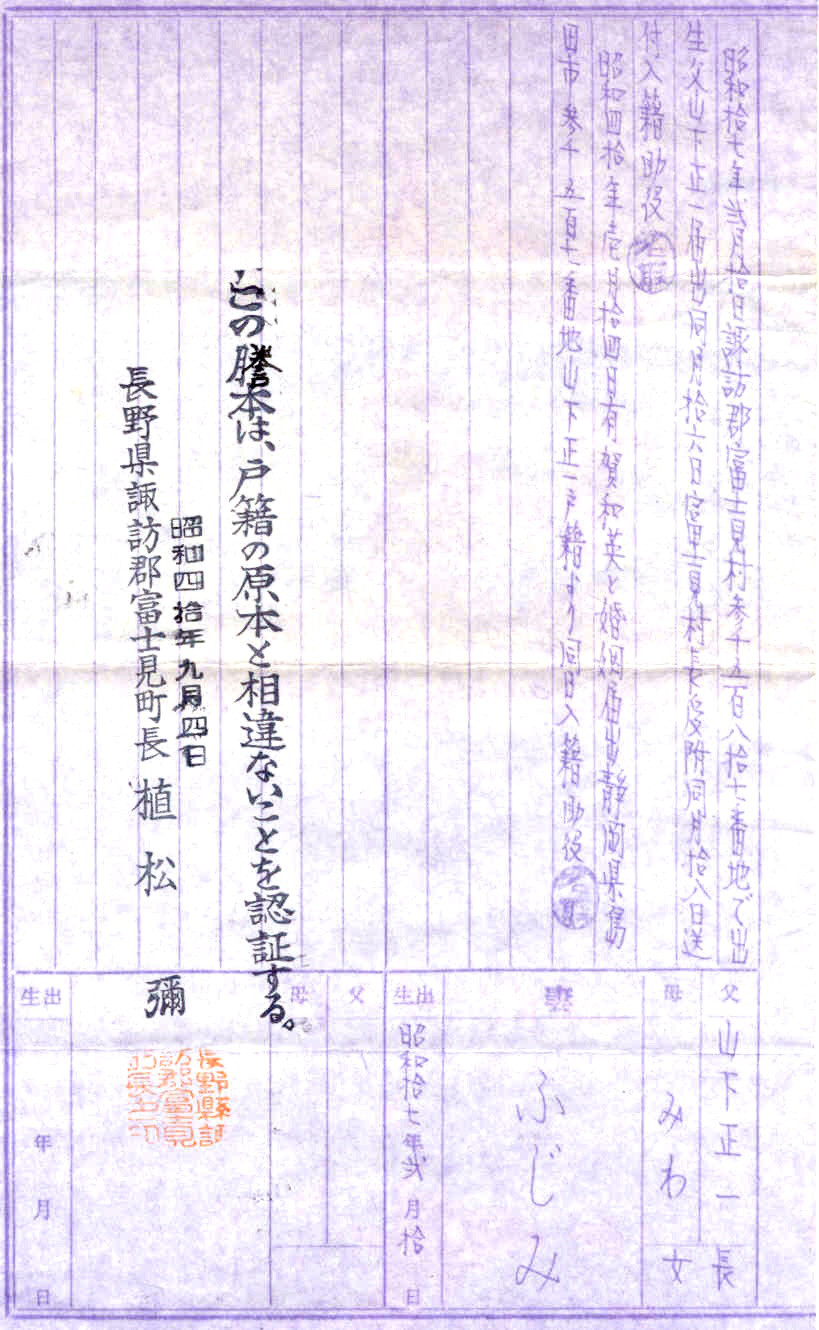 昭和拾七年弐月拾日諏訪郡富士見村参千五百八拾七番地で出
生父山下正一届出同月拾六日富士見村長受附同月拾八日送
付入籍助役
昭和四拾年壱月拾四日有賀和英と婚姻届出静岡県島
田市参千五百七番地山下正一戸籍より同日入籍助役
父
山下正一
長
母
みわ
女
妻
ふじみ
出生
昭和拾七年弐月拾日
父
母
この謄本は、戸籍の原本と相違ないことを認証する。
昭和四拾年九月四日
長野県諏訪郡富士見町長 植松 彌
出生
年
月
日